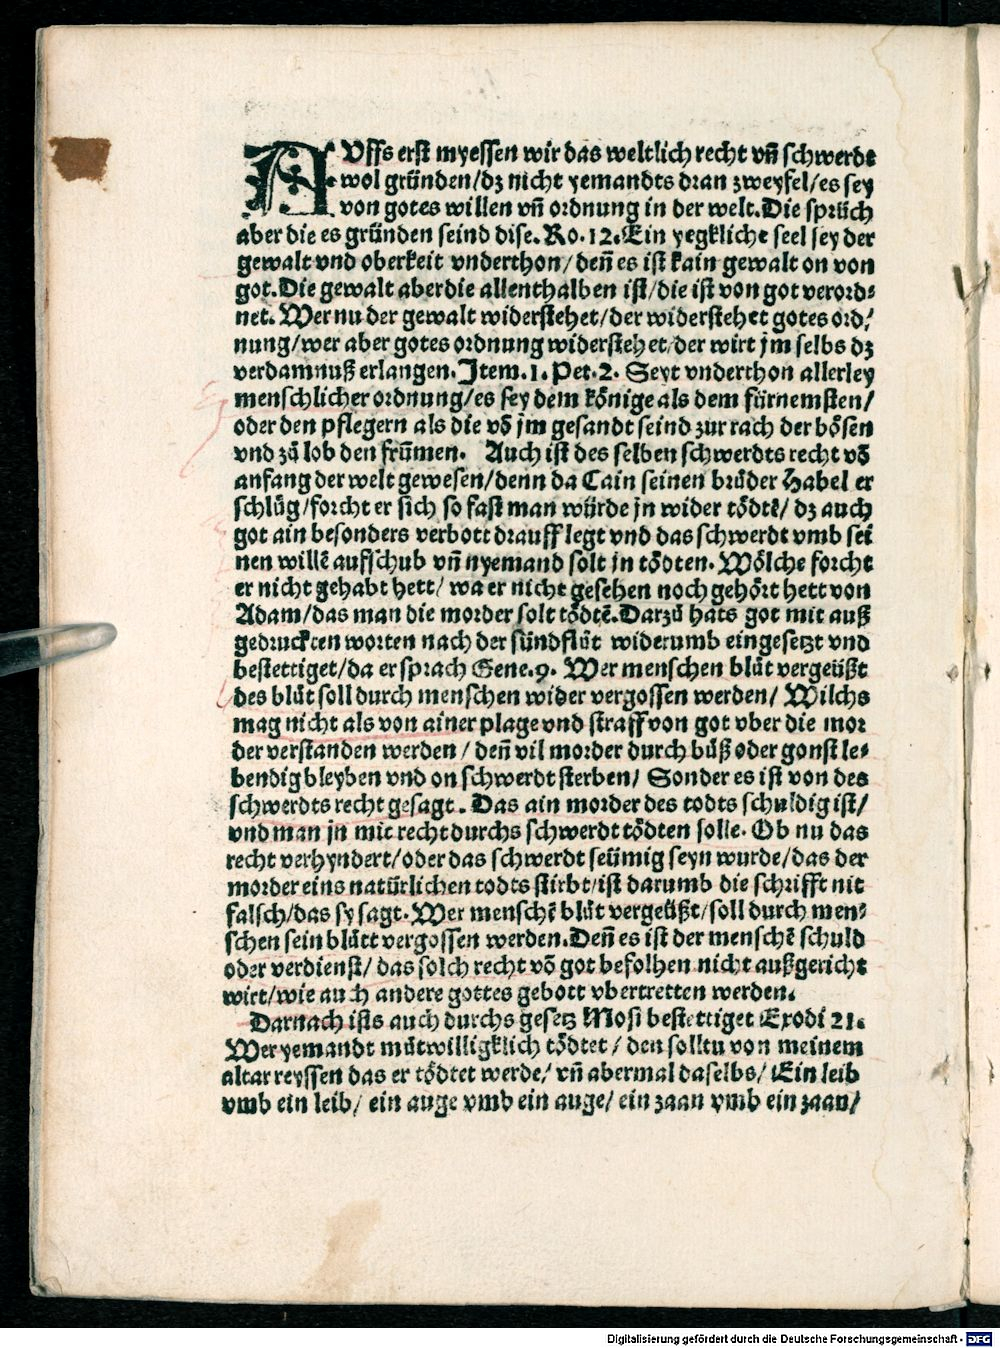 AUffs erst myessen wir das weltlich recht vñ schwerdt
wol gründen/dz nicht yemandts dran zweyfel/es sey
von gotes willen vñ ordnung in der welt.Die sprüch
aber die es gründen seind dise.Ro.12.Ein yegkliche seel sey der
gewalt vnd oberkeit vnderthon/deñ es ist kain gewalt on von
got.Die gewalt aberdie allenthalben ist/die ist von got verord⸗
net. Wer nu der gewalt widerstehet/der widerstehet gotes ord⸗
nung/wer aber gotes ordnung widerstehet/der wirt jm selbs dz
verdamnuß erlangen.Item.1.Pet.2. Seyt vnderthon allerley
menschlicher ordnung/es sey dem könige als dem fürnemsten/
oder den pflegern als die võ jm gesandt seind zur rach der bösen
vnd zů lob den frũmen. Auch ist des selben schwerdts recht võ
anfang der welt gewesen/denn da Cain seinen brůder Habel er
schlůg/forcht er sich so fast man würde jn wider tödtẽ/dz auch
got ain besonders verbott drauff legt vnd das schwerdt vmb sei
nen willẽ aufschub vñ nyemand solt jn tödten. Wölche forcht
er nicht gehabt hett/ wa er nicht gesehen noch gehört hett von
Adam/das man die morder solt tödtẽ.Darzů hats got mit auß
gedruckten worten nach der sündflůt widerumb eingesetzt vnd
bestettiget/da er sprach Gene.9. Wer menschen blůt vergeüßt
des blůt soll durch menschen wider vergossen werden/ Wilchs
mag nicht als von ainer plage vnd straff von got vber die mor
der verstanden werden/deñ vil morder durch bůß oder gonst le⸗
bendig bleyben vnd on schwerdt sterben/ Sonder es ist von des
schwerdts recht gesagt. Das ain morder des todts schuldig ist/
vnd man jn mit recht durchs schwerdt tödten solle. Ob nu das
recht verhyndert/oder das schwerdt seümig seyn wurde/das der
morder eins natürlichen todts stirbt/ist darumb die schrifft nit
falsch/das sy sagt.Wer menschẽ blůt vergeüßt/soll durch men⸗
schen sein blůtt vergossen werden.Deñ es ist der menschẽ schuld
oder verdienst/ das solch recht võ got befolhen nicht außgericht
wirt/wie auch andere gottes gebott vbertretten werden.
Darnach ists auch durchs gesetz Mosi bestettiget Exodi 21.
Wer yemandt můtwilligklich tödtet/den solltu von meinem
altar reyssen das er tödtet werde/ vñ abermal daselbs/ Ein leib
vmb ein leib/ ein auge vmb ein auge/ ein zaan vmb ein zaan/
Digitalisierung gefördert durch die Deutsche Forschungsgemeinschaft - DFG